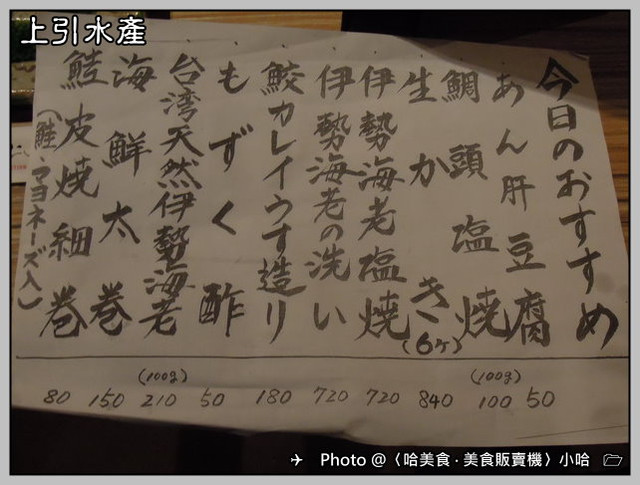 上引水產
今日のおすすめ
あん肝豆腐
鯛頭塩焼
生かき(6ヶ)
伊勢海老塩焼
伊勢海老の洗い
鮫カレイうす造り
もずく酢
台湾天然伊勢海老
海鮮太巻
鮭皮焼細巻
(鮭・マヨネーズ入)
(100g) (100g)
80 150 210 50 180 720 720 840 100 50
Photo @〈哈美食·美食販賣機〉小哈